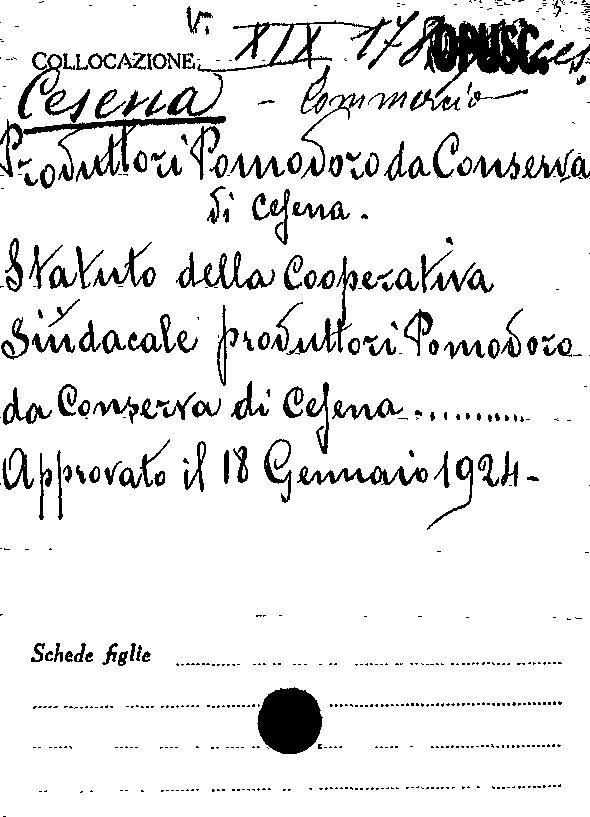 V.
COLLOCAZIONE XIX 178 OPUSC. ces.
Cesena - Commercio
Produttori Pomodoro da Conserva
di Cesena.
Statuto della Cooperativa
Sindacale produttori Pomodoro
da Conserva di Cesena..........
Approvato il 18 Gennaio 1924-
Schede figlie